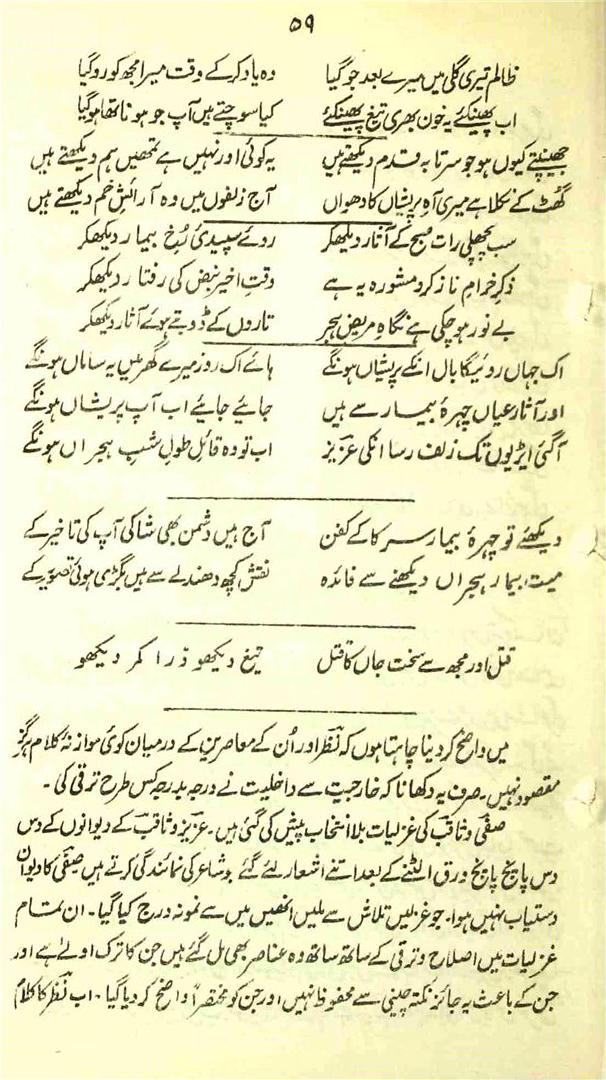 ۵۹
ظالم تیری گلی میں میرے بعد جو گیا وہ یاد کر کے وقت میرا مجھ کو رو گیا
اب پھینکئے یہ خون بھری تیغ پھینکئے کیا سوچتے ہیں آپ جو ہونا تھا ہو گیا
جھینپتے کیوں ہو جو سر تا بہ قدم دیکھتے ہیں یہ کوئی اور نہیں ہے تمھیں ہم دیکھتے ہیں
گھٹ کے نکلا ہے میری آہِ پریشاں کا دھواں آج زلفوں میں وہ آرائشِ خم دیکھتے ہیں
سب پچھلی رات صبح کے آثار دیکھکر روئے سپیدیٔ رُخِ بیمار دیکھکر
ذکرِ خرامِ ناز کرو مشورہ یہ ہے وقتِ اخیر نبض کی رفتار دیکھکر
بے نور ہو چکی ہے نگاہِ مریضِ ہجر تاروں کے ڈوبتے ہوئے آثار دیکھکر
اک جہاں روئیگا بال انکے پریشاں ہونگے ہائے اک روز میرے گھر میں یہ ساماں ہونگے
اور آثار عیاں چہرۂ بیمار سے ہیں جائیے جائیے اب آپ پریشاں ہونگے
آگئی ایڑیوں تک زلف رسا انکی عزیز اب تو وہ قائلِ طولِ شبِ ہجراں ہونگے
دیکھئے تو چہرۂ بیمار سرکا کے کفن آج ہیں دشمن بھی شاکی آپ کی تاخیر کے
میت بیمار ہجراں دیکھنے سے فائدہ نقش کچھ دھندلے سے ہیں بگڑی ہوئی تصویر کے
قتل اور مجھ سے سخت جاں کا قتل تیغ دیکھو ذرا کمر دیکھو
میں واضح کر دینا چاہتا ہوں کہ نظر اور اُن کے معاصرین کے درمیان کوئی موازنۂ کلام ہرگز
مقصود نہیں۔ صرف یہ دکھانا کہ خارجیت سے داخلیت نے درجہ بدرجہ کس طرح ترقی کی۔
صفی و ثاقب کی غزلیات بلا انتخاب پیش کی گئی ہیں۔ عزیز و ثاقب کے دیوانوں کے دس
دس پانچ پانچ ورق الٹنے کے بعد اتنے اشعار لئے گئے جو شاعر کی نمائندگی کرتے ہیں صفی کا دیوان
دستیاب نہیں ہوا۔ جو غزلیں تلاش سے ملیں انھیں میں سے نمونہ درج کیا گیا۔ ان تمام
غزلیات میں اصلاح و ترقی کے ساتھ ساتھ وہ عناصر بھی مل گئے ہیں جن کا ترک اولےٰ ہے اور
جن کے باعث یہ جائز نکتہ چینی سے محفوظ نہیں اور جن کو مختصراً واضح کر دیا گیا۔ اب نظر کا کلام